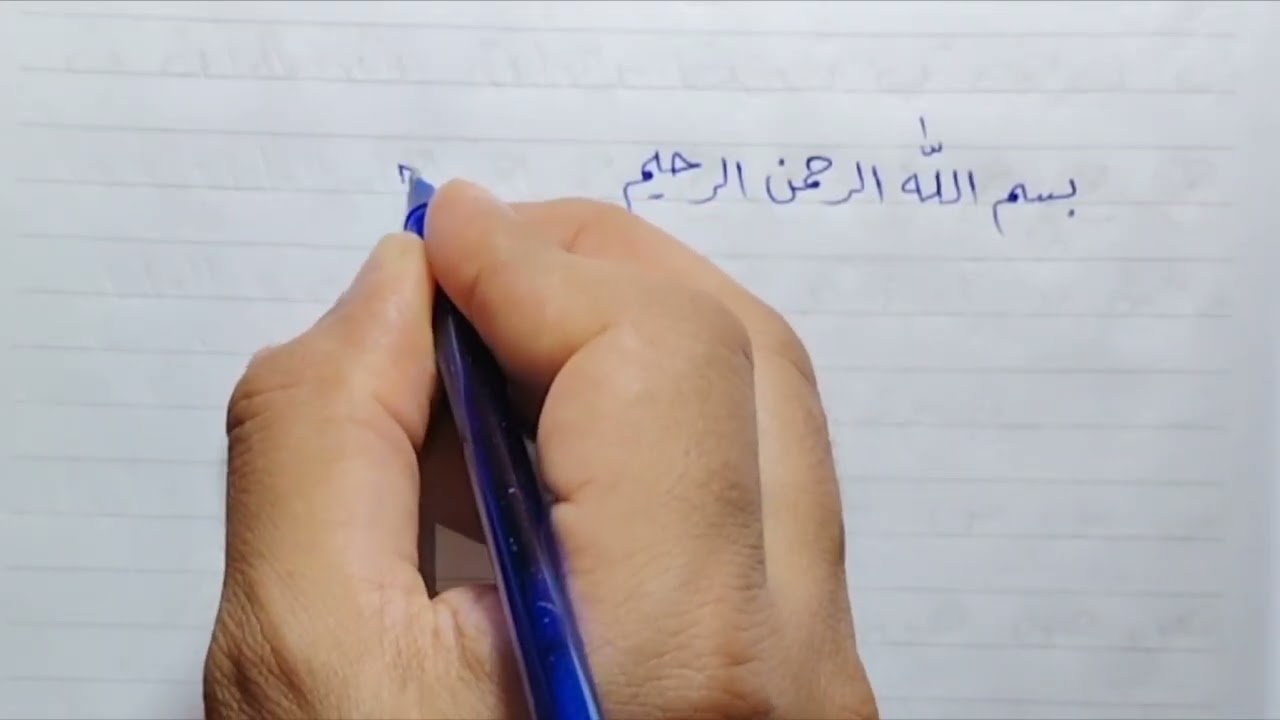 بسم اللّٰه الرحمن الرحيم